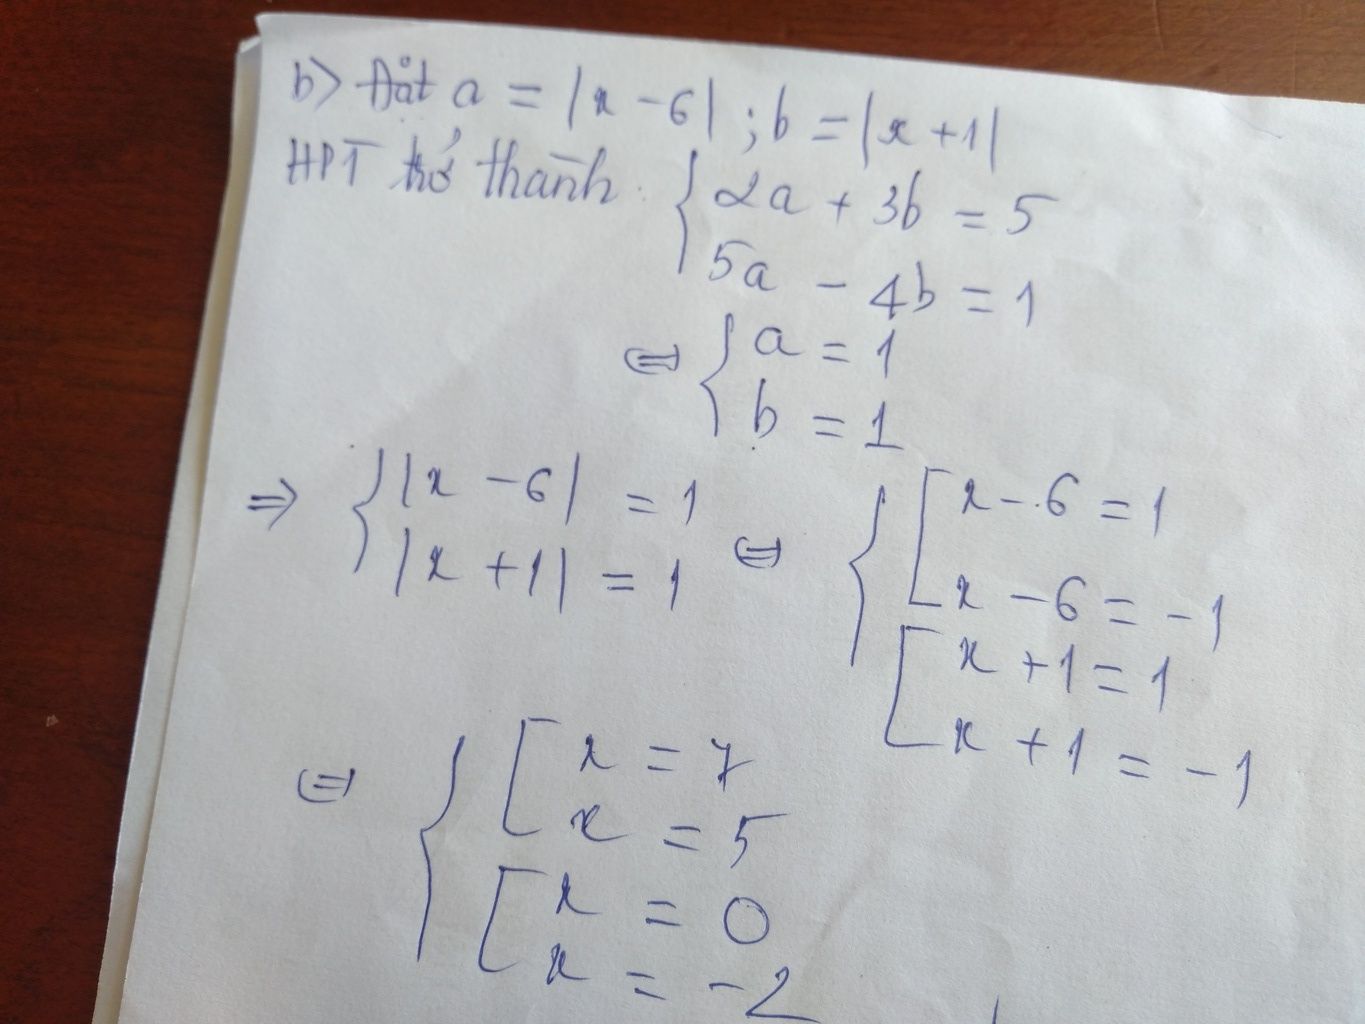 b> Đặt a = |x - 6| ; b = |x + 1|
HPT trở thành. { 2a + 3b = 5
5a - 4b = 1
⇔ { a = 1
b = 1
⇒ { |x - 6| = 1
|x + 1| = 1
⇔ { [ x - 6 = 1
x - 6 = -1
[ x + 1 = 1
x + 1 = -1
⇔ { [ x = 7
x = 5
[ x = 0
x = -2